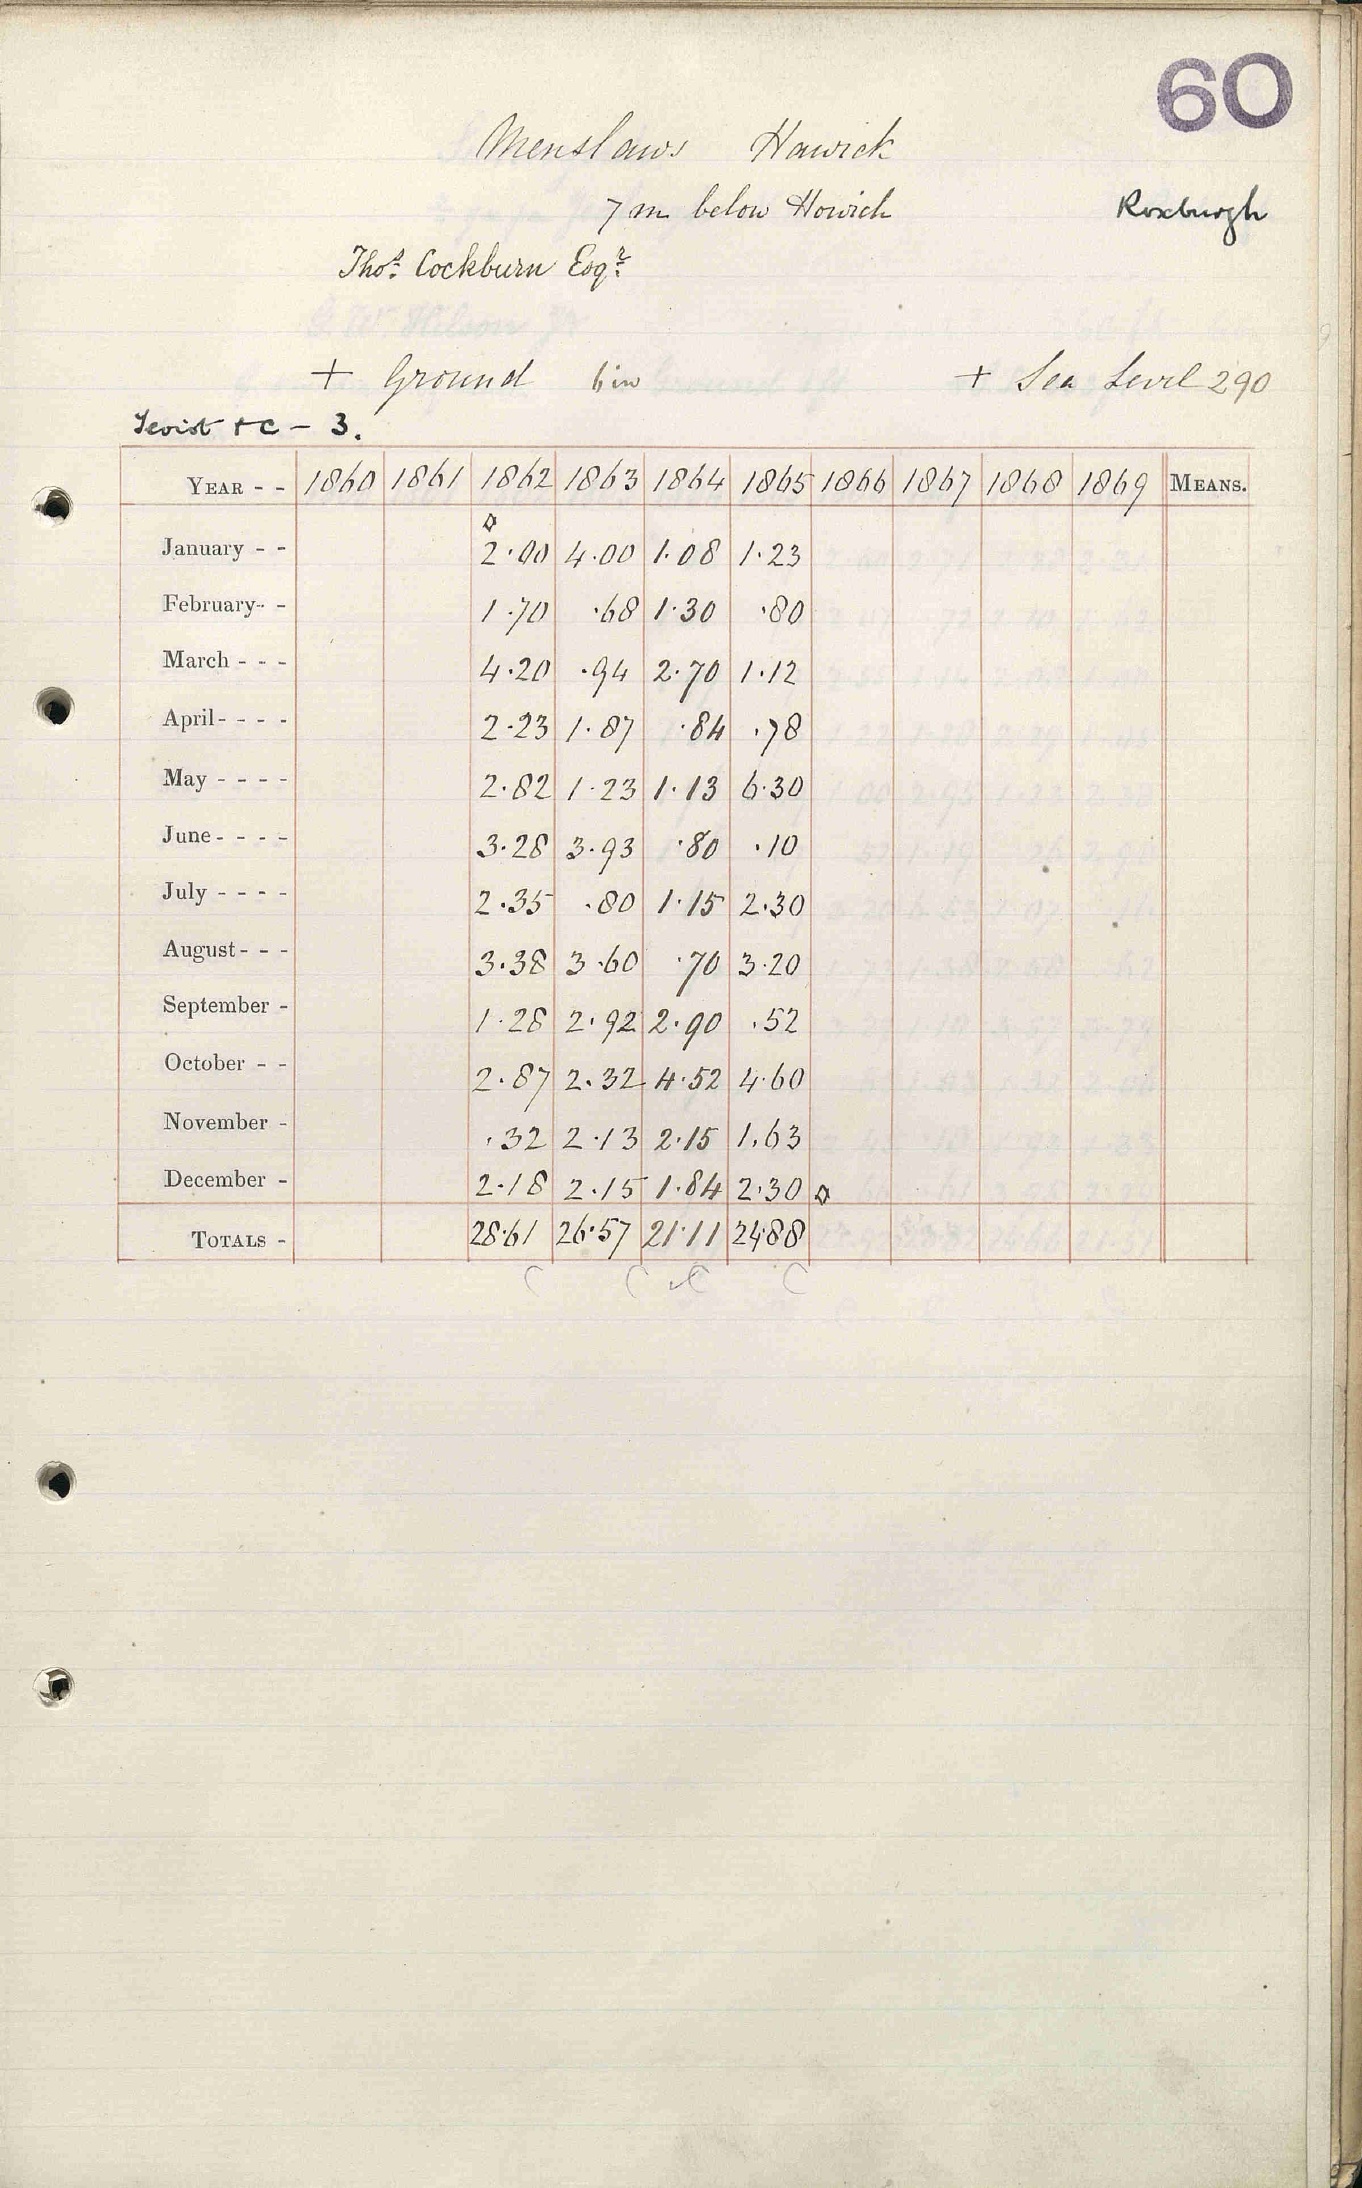 60
Menslaws Hawick
7 m below Howick
Roxburgh
Thos. Cockburn Esqr.
+ Ground 6 in + Sea Level 290
Teviot &c - 3.
YEAR - - 1860 1861 1862 1863 1864 1865 1866 1867 1868 1869 MEANS.
January - - 2.00 4.00 1.08 1.23
February - - 1.70 .68 1.30 .80
March - - - 4.20 .94 2.70 1.12
April - - - - 2.23 1.87 .84 .78
May - - - - 2.82 1.23 1.13 6.30
June - - - - 3.28 3.93 .80 .10
July - - - - 2.35 .80 1.15 2.30
August - - - 3.38 3.60 .70 3.20
September - 1.28 2.92 2.90 .52
October - - 2.87 2.32 4.52 4.60
November - .32 2.13 2.15 1.63
December - 2.18 2.15 1.84 2.30
TOTALS - 28.61 26.57 21.11 24.88